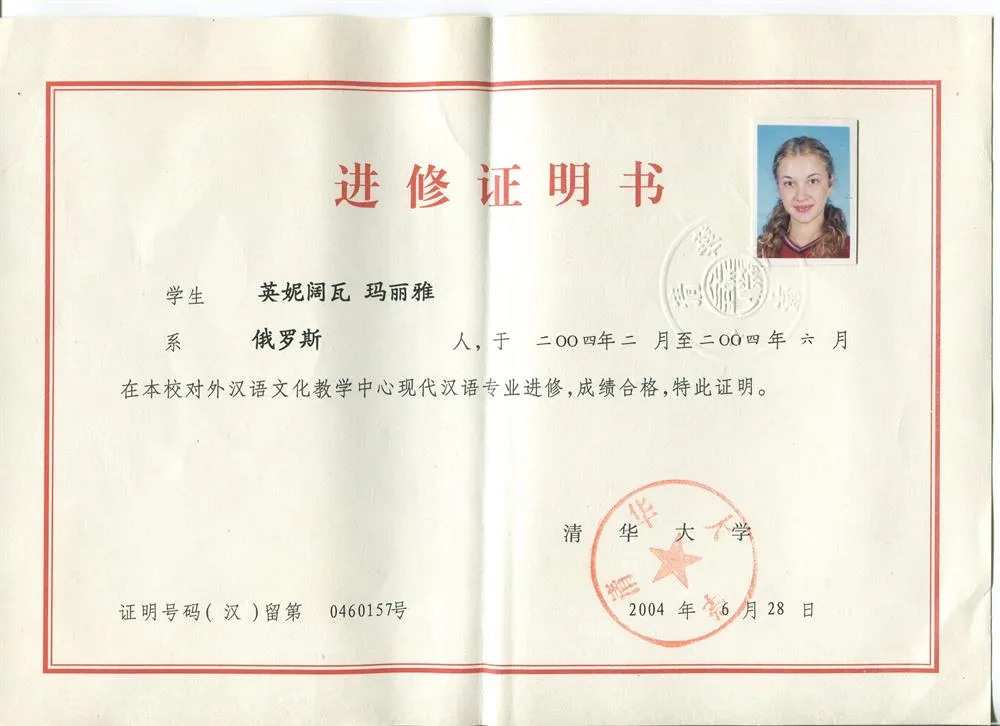 进修证明书
学生 英妮阔瓦 玛丽雅
系 俄罗斯 人，于 二〇〇四年二 月至二〇〇四年 六 月
在本校对外汉语文化教学中心现代汉语专业进修，成绩合格，特此证明。
清 华 大 学
清华大学
2004 年 6 月 28 日
证明号码( 汉 )留第 0460157号